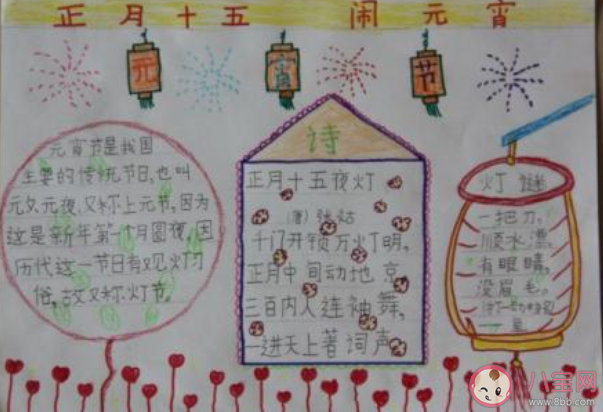 正月十五 闹元宵
元 宵 节
元宵节是我国
主要的传统节日,也叫
元夕、元夜,又称上元节,因为
这是新年第一个月圆夜,因
历代这一节日有观灯习
俗,故又称灯节。
诗
正月十五夜灯
(唐)张祜
千门开锁万灯明,
正月中旬动地京
三百内人连袖舞,
一进天上著词声
灯谜
一把刀,
顺水漂,
有眼睛,
没眉毛。
八宝网
www.8bb.com